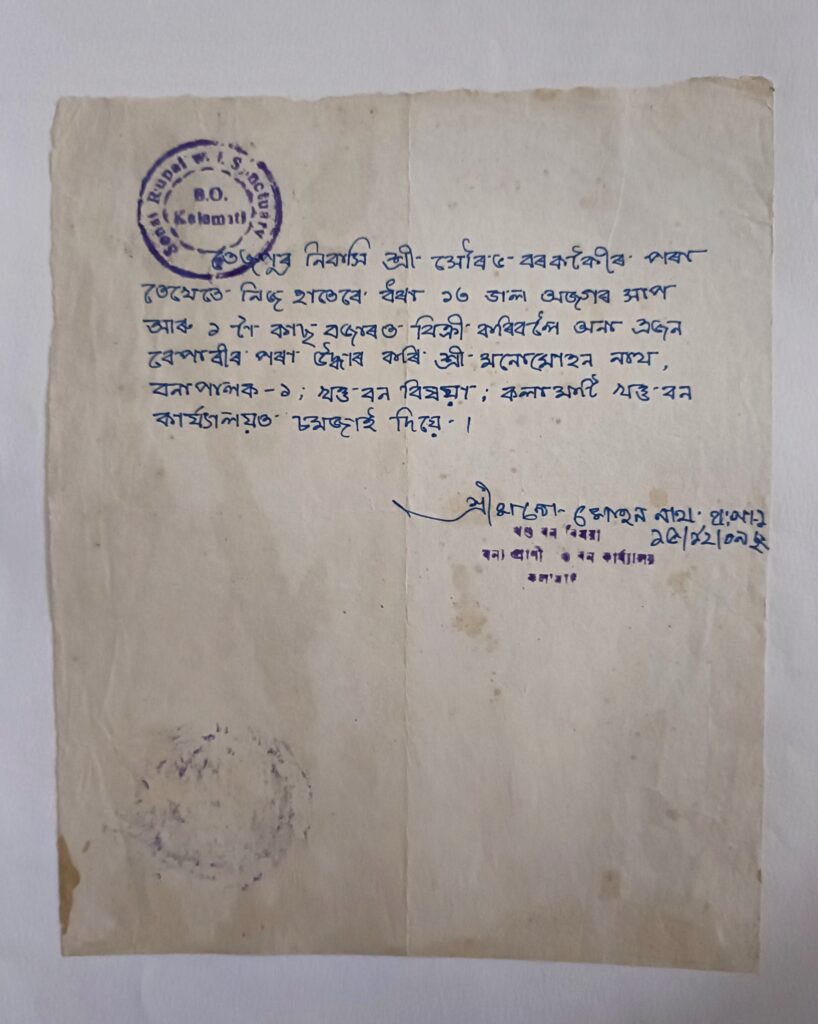 Sonai Rupai W. L. Sanctuary
B.O.
Kalamati
তেজপুৰ নিবাসি শ্ৰী সৌৰভ বৰকাকৈৰ পৰা
তেখেতে নিজ হাতেৰে ধৰা ১৩ ডাল অজগৰ সাপ
আৰু ১ টা কাছ বজাৰত বিক্ৰী কৰিবলৈ অনা এজন
বেপাৰীৰ পৰা উদ্ধাৰ কৰি শ্ৰী মনোমোহন নাথ,
বনপালক-১; খণ্ড বন বিষয়া; কলামাটি খণ্ড বন
কাৰ্য্যালয়ত চমজাই দিয়ে।
শ্ৰী মনো মোহন নাথ
খণ্ড বন বিষয়া
বন্য প্ৰাণী বন কাৰ্য্যালয়